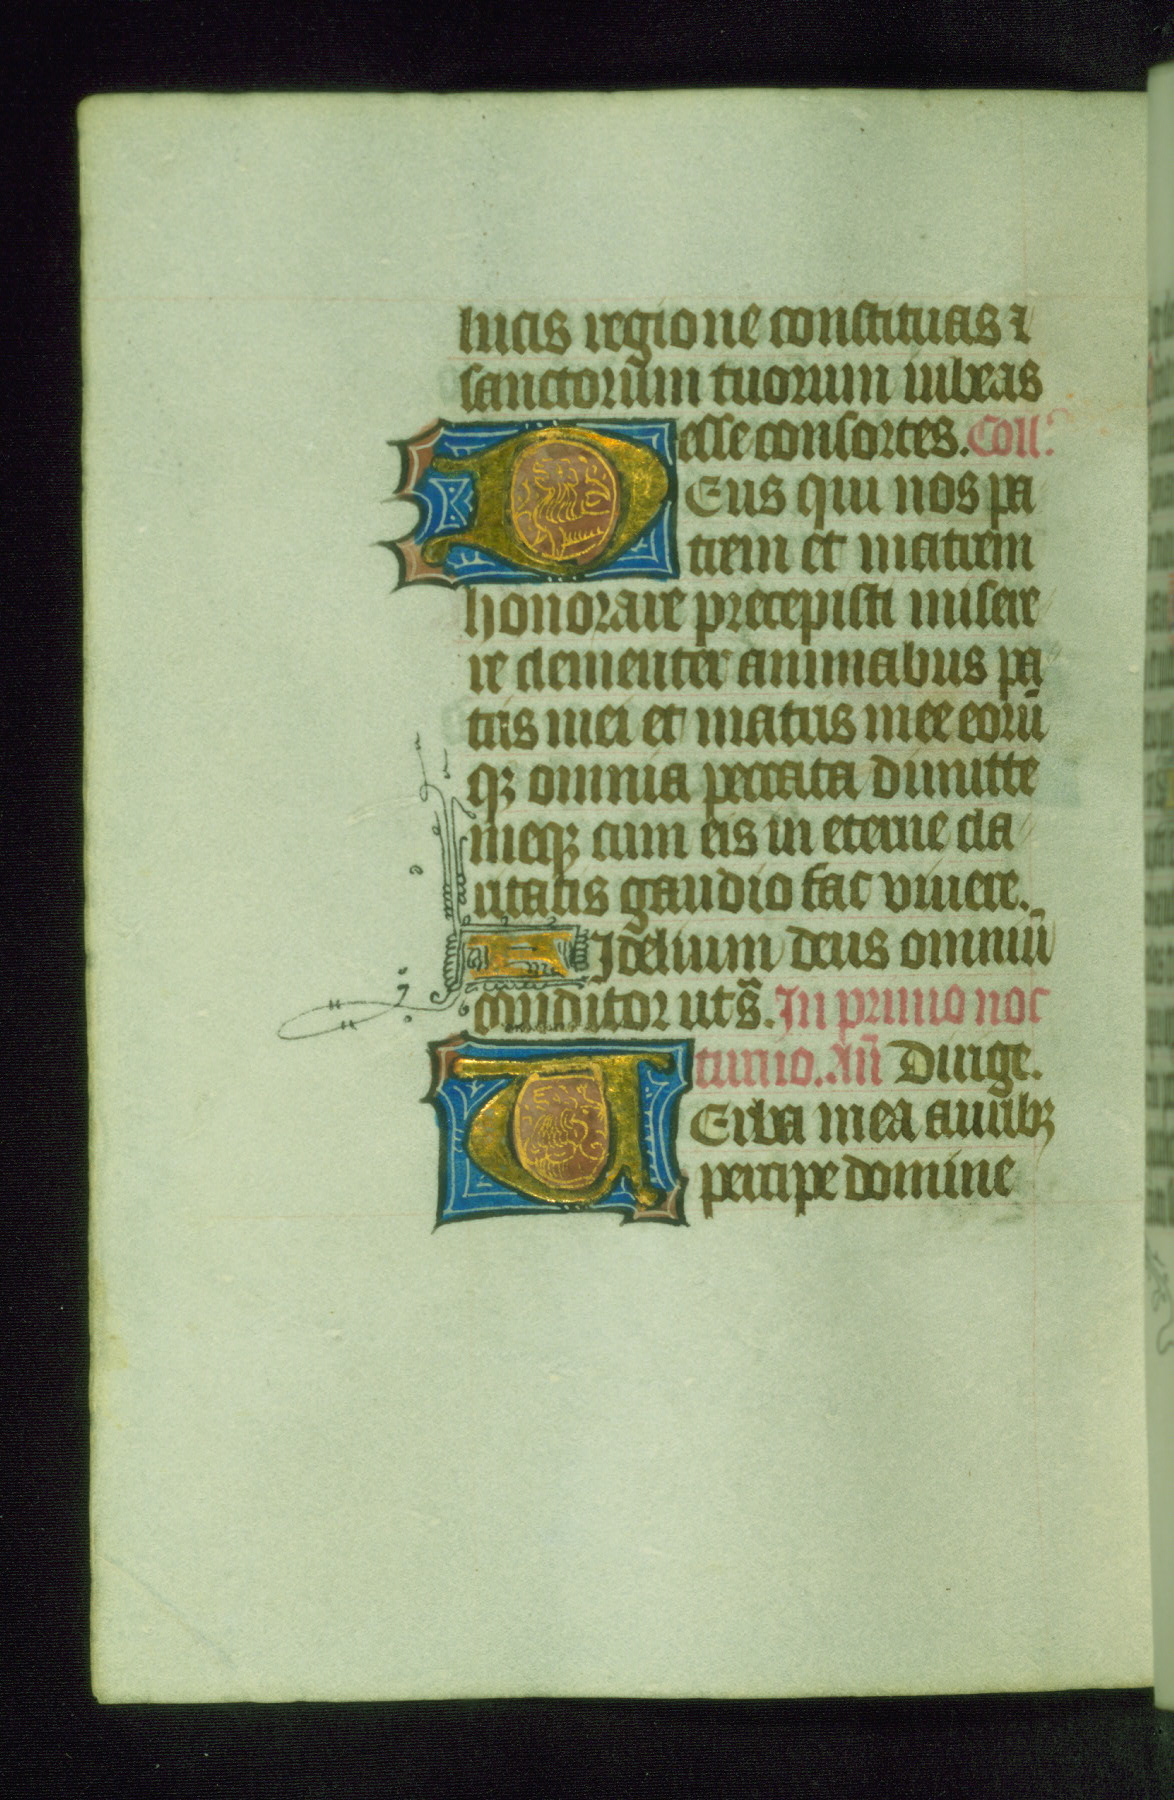 lucis regione constituas ⁊
sanctorum tuorum iubeas
esse consortes. Coll'.
DEus qui nos pa
trem et matrem
honorare precepisti misere
re clementer animabus pa
tris mei et matris mee eorū
qꝫ omnia peccata dimitte
meqꝫ cum eis in eterne cla
ritatis gaudio fac viuere.
FIdelium deus omniū
conditor ut s̄. In primo noc
turno. Añ Dirige.
VErba mea auribꝫ
percipe domine